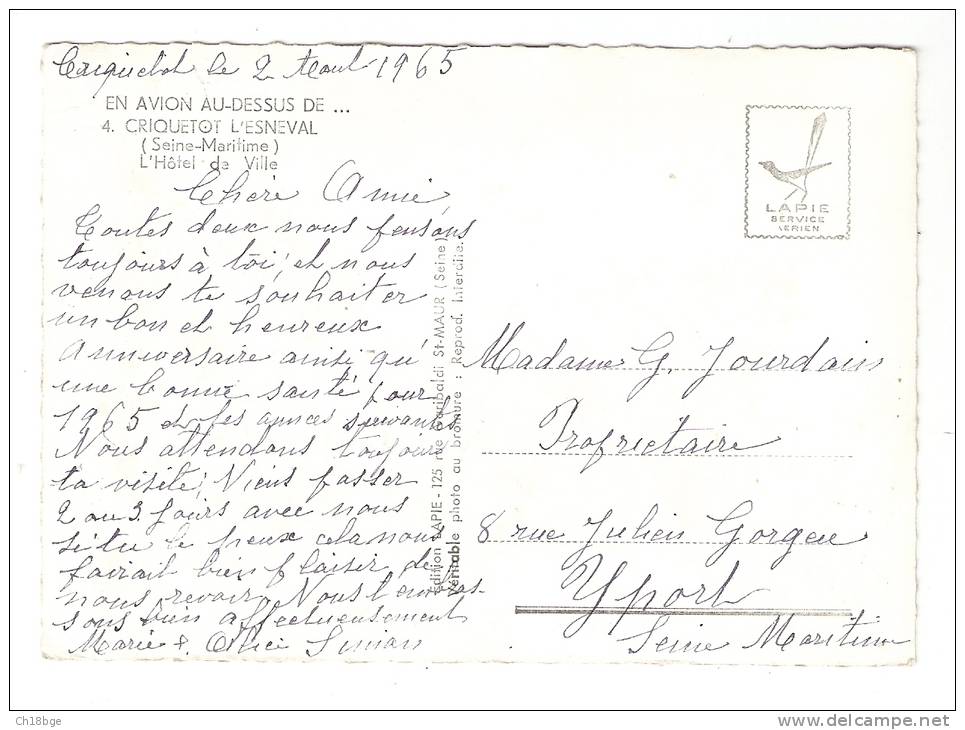 Criquetot le 2 Aout 1965
EN AVION AU-DESSUS DE ...
4. CRIQUETOT L'ESNEVAL
(Seine-Maritime)
L'Hôtel de Ville
Chère Amie,
Toutes deux nous pensons
toujours à toi, et nous
venons te souhaiter
un bon et heureux
Anniversaire ainsi qu'
une bonne santé pour
1965 et les années suivantes
Nous attendons toujours
ta visite, Viens passer
2 ou 3 jours avec nous
si tu le peux cela nous
fairait bien plaisir de
nous revoir. Nous t'embras-
sons bien affectueusement
Marie & Alice Simian
Edition LAPIE - 125 rue Garibaldi St-MAUR (Seine)
Véritable photo au bromure : Reprod. interdite.
LAPIE
SERVICE
AERIEN
Madame G. Jourdain
Propriétaire
8 rue Julien Gorgeu
Yport
Seine Maritime
Ch18bge
http://www.delcampe.net